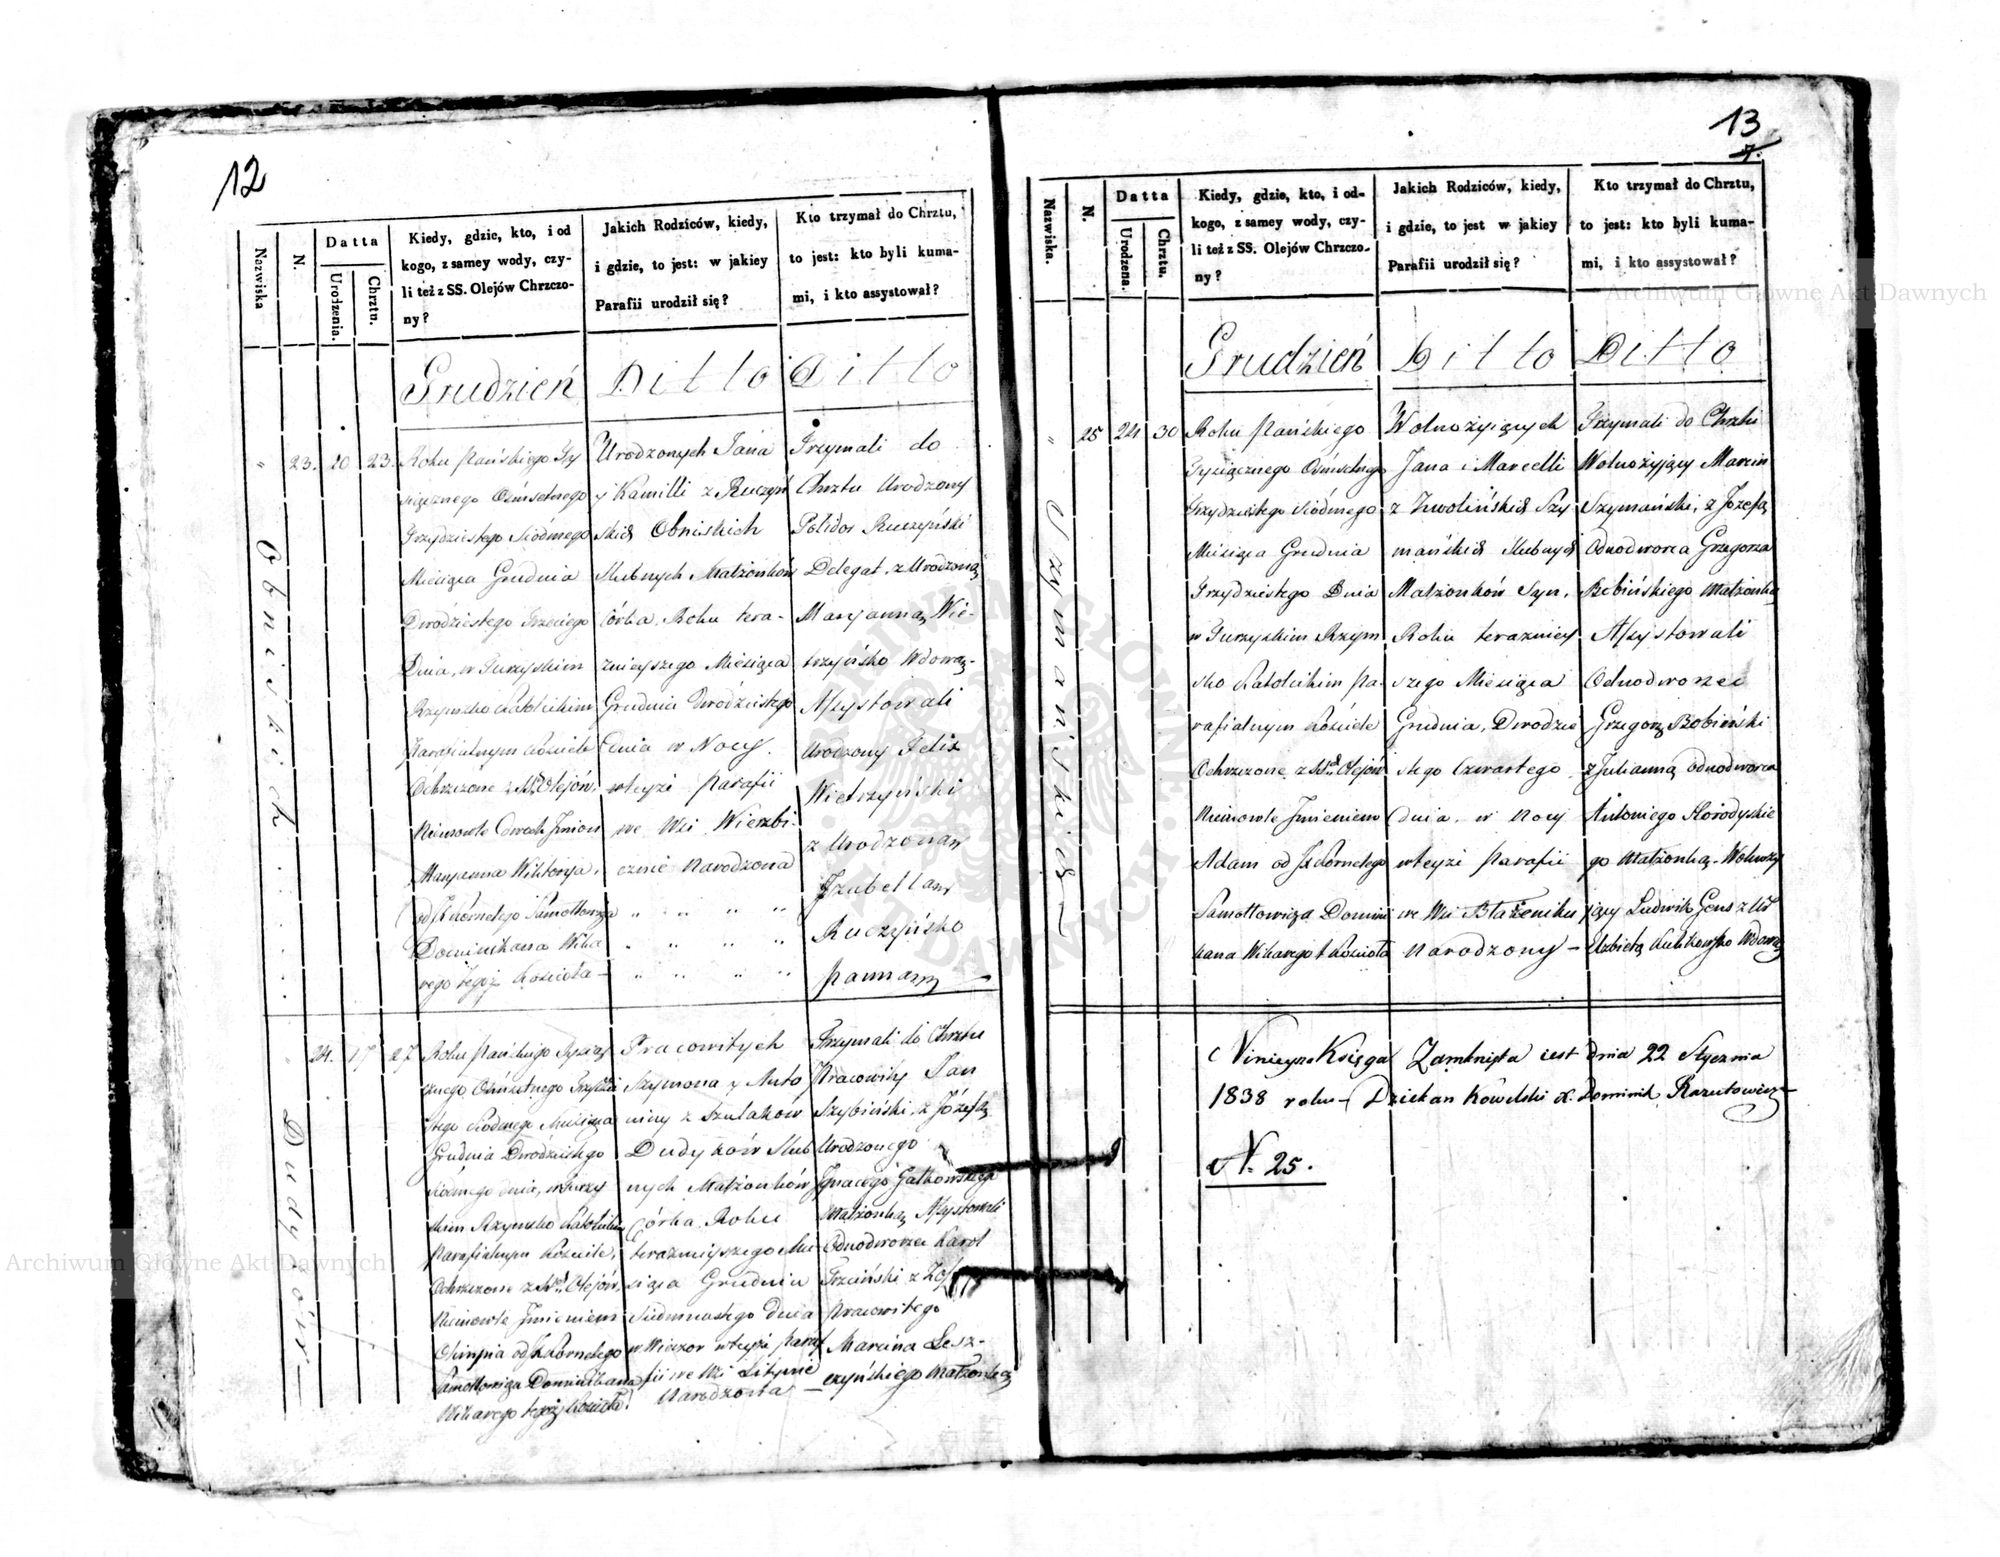 12
Nazwiska
N.
Datta
Urodzenia.
Chrztu.
Kiedy, gdzie, kto, i od
kogo, z samey wody, czy-
li też z SS. Olejów Chrzczo-
ny?
Jakich Rodziców, kiedy,
i gdzie, to jest: w jakiey
Parafii urodził się?
Kto trzymał do Chrztu,
to jest: kto byli kuma-
mi, i kto assystował?
Grudzień
Ditto
Ditto
Obniskich
23.
20
23.
Roku Pańskiego Ty
siącznego Ośmsetnego
Trzydziestego Siódmego
Miesiąca Grudnia
Dwódziestego Trzeciego
Dnia, w Turzyskim
Rzymsko Katolickim
Parafialnym Kościele
Ochrzczone z Olejów,
Mianowte Dwoch Jmion
Maryanna Wiktorya,
Samottowicza
Dominikana Wika
rego tegoż Kościoła-
Urodzonych Jana
y Kamilli z Ruczyń
skich Obniskich
Slubnych Małżonków
Córka. Roku tera-
znieyszego Miesiąca
Grudnia Dwódziestego
dnia w Nocy.
wteyżi Parafii
we Wsi Wierzbi-
cznie Narodzona
Trzymali do
Chrztu Urodzony
Polidor Ruczyński
Delegat, z Urodzoną
Maryanną Wie-
trzyńsko Wdową-
Assystowali
Urodzony Felix
Wietrzyński
z Urodzoną
Jzabellą
Ruczyńsko
Panną
Dudyków
24.
17
27
Roku Pańskiego Tysią
cznego Ośmsetnego Trzydzie
stego Siódmego Miesiąca
Grudnia Dwódziestego
Siódmego dnia, w Turzy
skim Rzymsko Katolickim
Parafialnym Kościele,
Ochrzczone z Olejów,
Mianowte Jmieniem
Olimpia od
Samottowicza Dominikana
Wikarego tegoż Kościoła.
Pracowitych
Szymona y Anto
niny z Szulaków
Dudyków Slub
nych Małżonków
Córka. Roku
teraznieyszego Mie
siąca Grudnia
Siedmnastego dnia
w Wieczor wteyżi Para
fii we Wsi Litynie
Narodzona
Trzymali do Chrztu
Pracowity Jan
Szybiński, z Józefą
Urodzonego
Jgnacego Gatkowskiego
Małżonką Assystowali
Odnodworzec Karol
Trzciński z
Pracowitego
Marcina Lesz-
czyńskiego Małżonką
13
7.
Nazwiska.
N.
Datta
Urodzena.
Chrztu.
Kiedy, gdzie, kto, i od-
kogo, z samey wody, czy-
li też z SS. Olejów Chrzczo-
ny?
Jakich Rodziców, kiedy,
i gdzie, to jest w jakiey
Parafii urodził się?
Kto trzymał do Chrztu,
to jest: kto byli kuma-
mi, i kto assystował?
Grudzień
Ditto
Ditto
Szymańskich
25
24
30
Roku Pańskiego
Tysiącznego Ośmsetnego
Trzydziestego Siódmego
Miesiąca Grudnia
Trzydziestego Dnia
w Turzyskim Rzym
sko Katolickim Pa-
rafialnym Kościele
Ochrzczone z Olejów
Mianowte Jmieniem
Adam od
Samottowicza Domini
kana Wikarego t Kościoła
Wolnożyiących
Jana i Marcelli
z Zwolińskich Szy
mańskich Slubnych
Małżonków Syn,
Roku teraźniey
szego Miesiąca
Grudnia, Dwodzie
stego Czwartego
dnia, w Nocy
wteyżi Parafii
we Wsi Błażeniku
Narodzony -
Trzymali do Chrztu
Wolnożyjący Marcin
Szymański, z Józefą
Odnodworca Grzegorza
Bobińskiego Małżonką
Assystowali
Odnodworzec
Grzegorz Bobiński
z Julianną odnodworca
Antoniego Korodyskie
go Małżonką- Wolnoży
jący Ludwik
Elzbietą Wdową
Ninieysza Księga Zamknięta iest dnia 22 Stycznia
1838 roku - Dziekan Kowelski X. Dominik
N. 25.
Archiwum Główne Akt Dawnych
Archiwum Główne Akt Dawnych